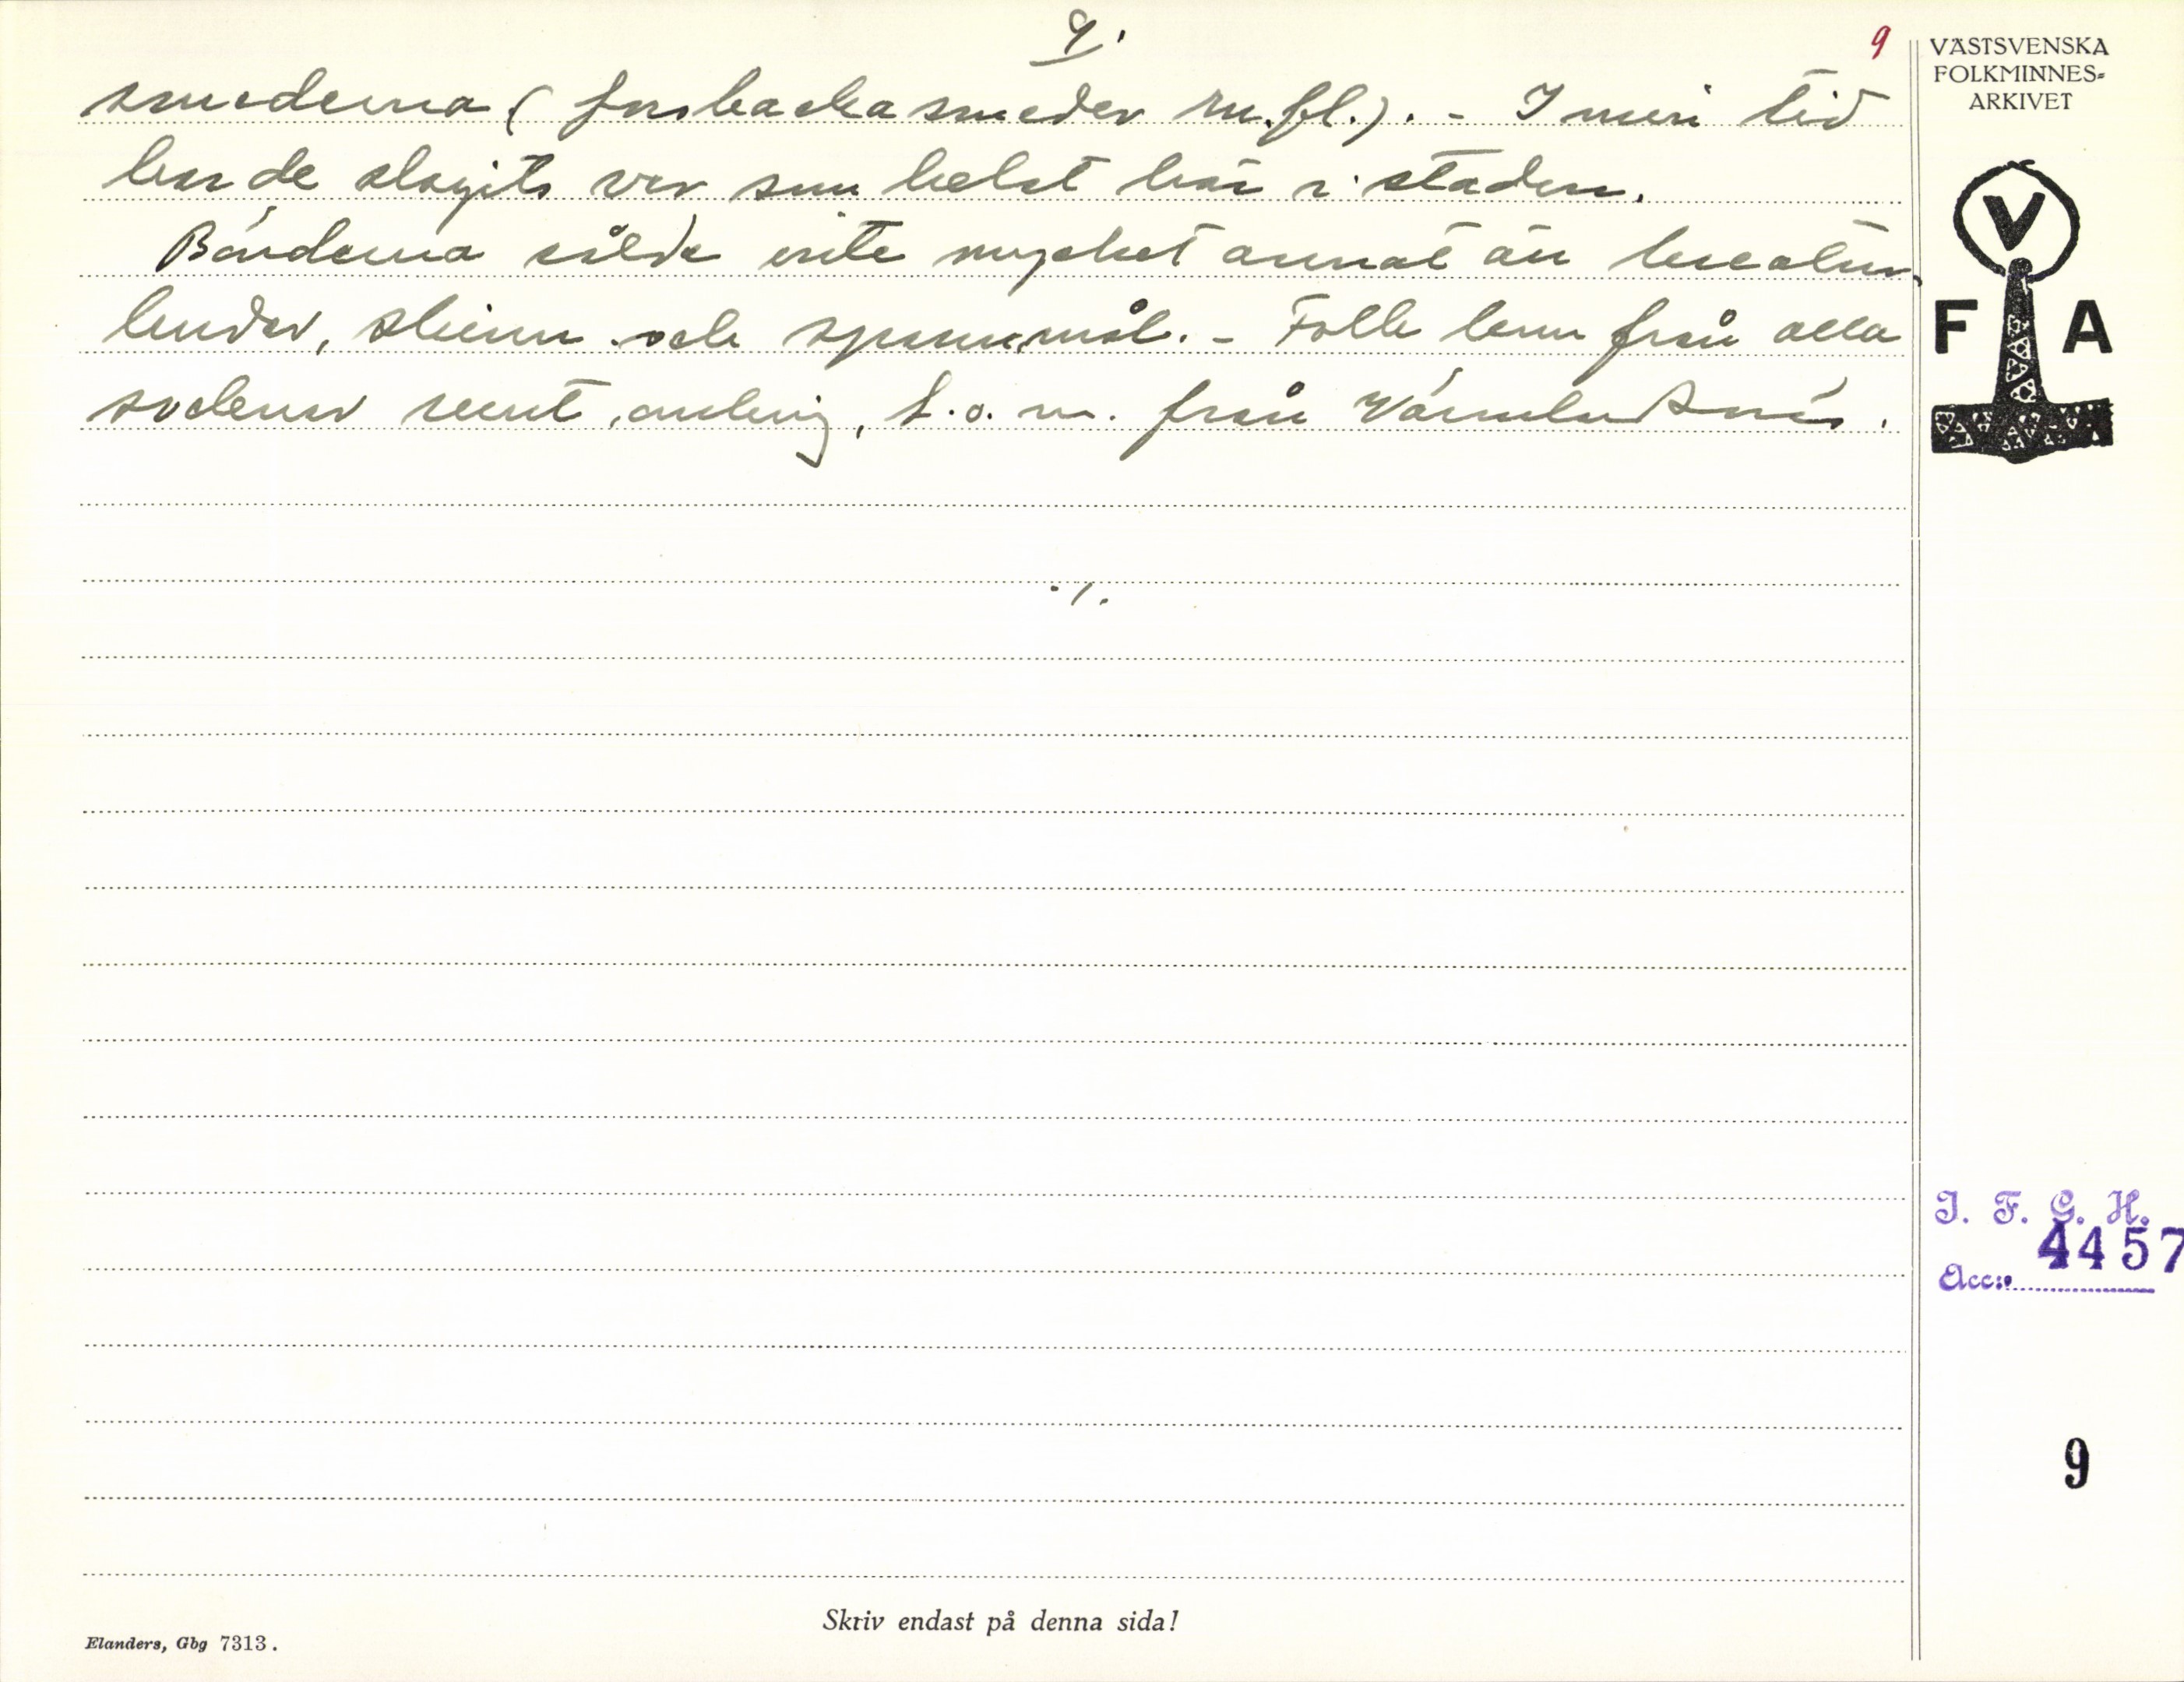 9.
9
smederna (Forsbackasmeder m.fl.). - I min tid
har de slagits var som helst här i staden.
Bönderna sålde inte mycket annat än kreatur,
hudar, skinn och spannmål. - Folk kom från alla
socknar runt omkring, t.o.m. från Värmlandsnäs.
./.
VÄSTSVENSKA
FOLKMINNES-
ARKIVET
V
F A
I. F. G. H.
4457
Acc:
9
Skriv endast på denna sida!
Elanders, Gbg 7313.